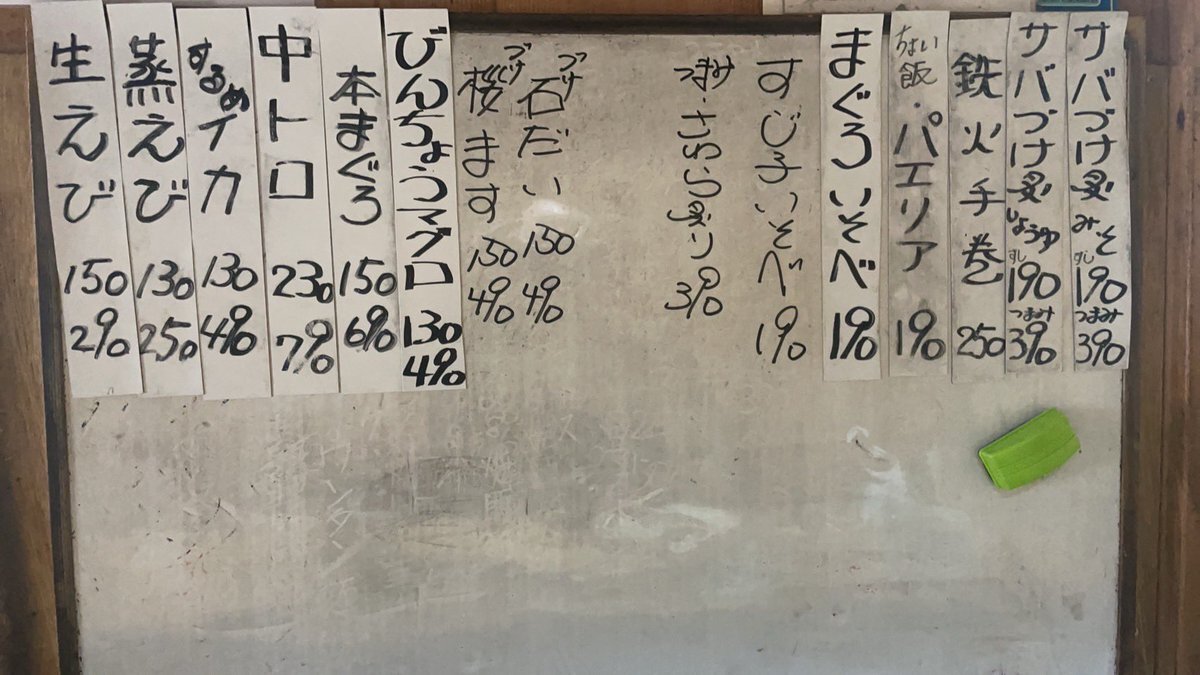 サバづけ炙みそ すし190 つまみ390
サバづけ炙しょうゆ すし190 つまみ390
鉄火手巻 250
ちょい飯・パエリア 190
まぐろいそべ 190
すじ子いそべ 190
つまみ・さわら炙り 390
づけ石だい 150 490
づけ桜ます 150 490
びんちょうマグロ 130 490
本まぐろ 150 690
中トロ 230 790
するめイカ 130 490
蒸えび 130 250
生えび 150 290